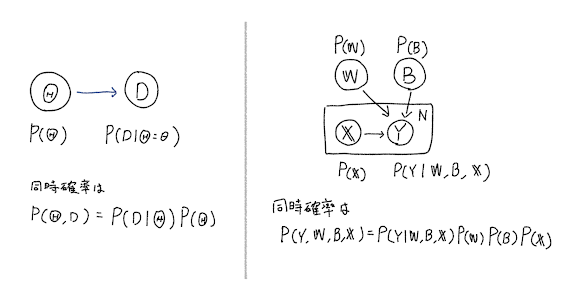 Θ D
P(Θ) P(D|Θ=θ)
同時確率は
P(Θ,D) = P(D|Θ)P(Θ)
P(W) P(B)
W B
N
X Y
P(X) P(Y|W,B,X)
同時確率は
P(Y,W,B,X)=P(Y|W,B,X)P(W)P(B)P(X)